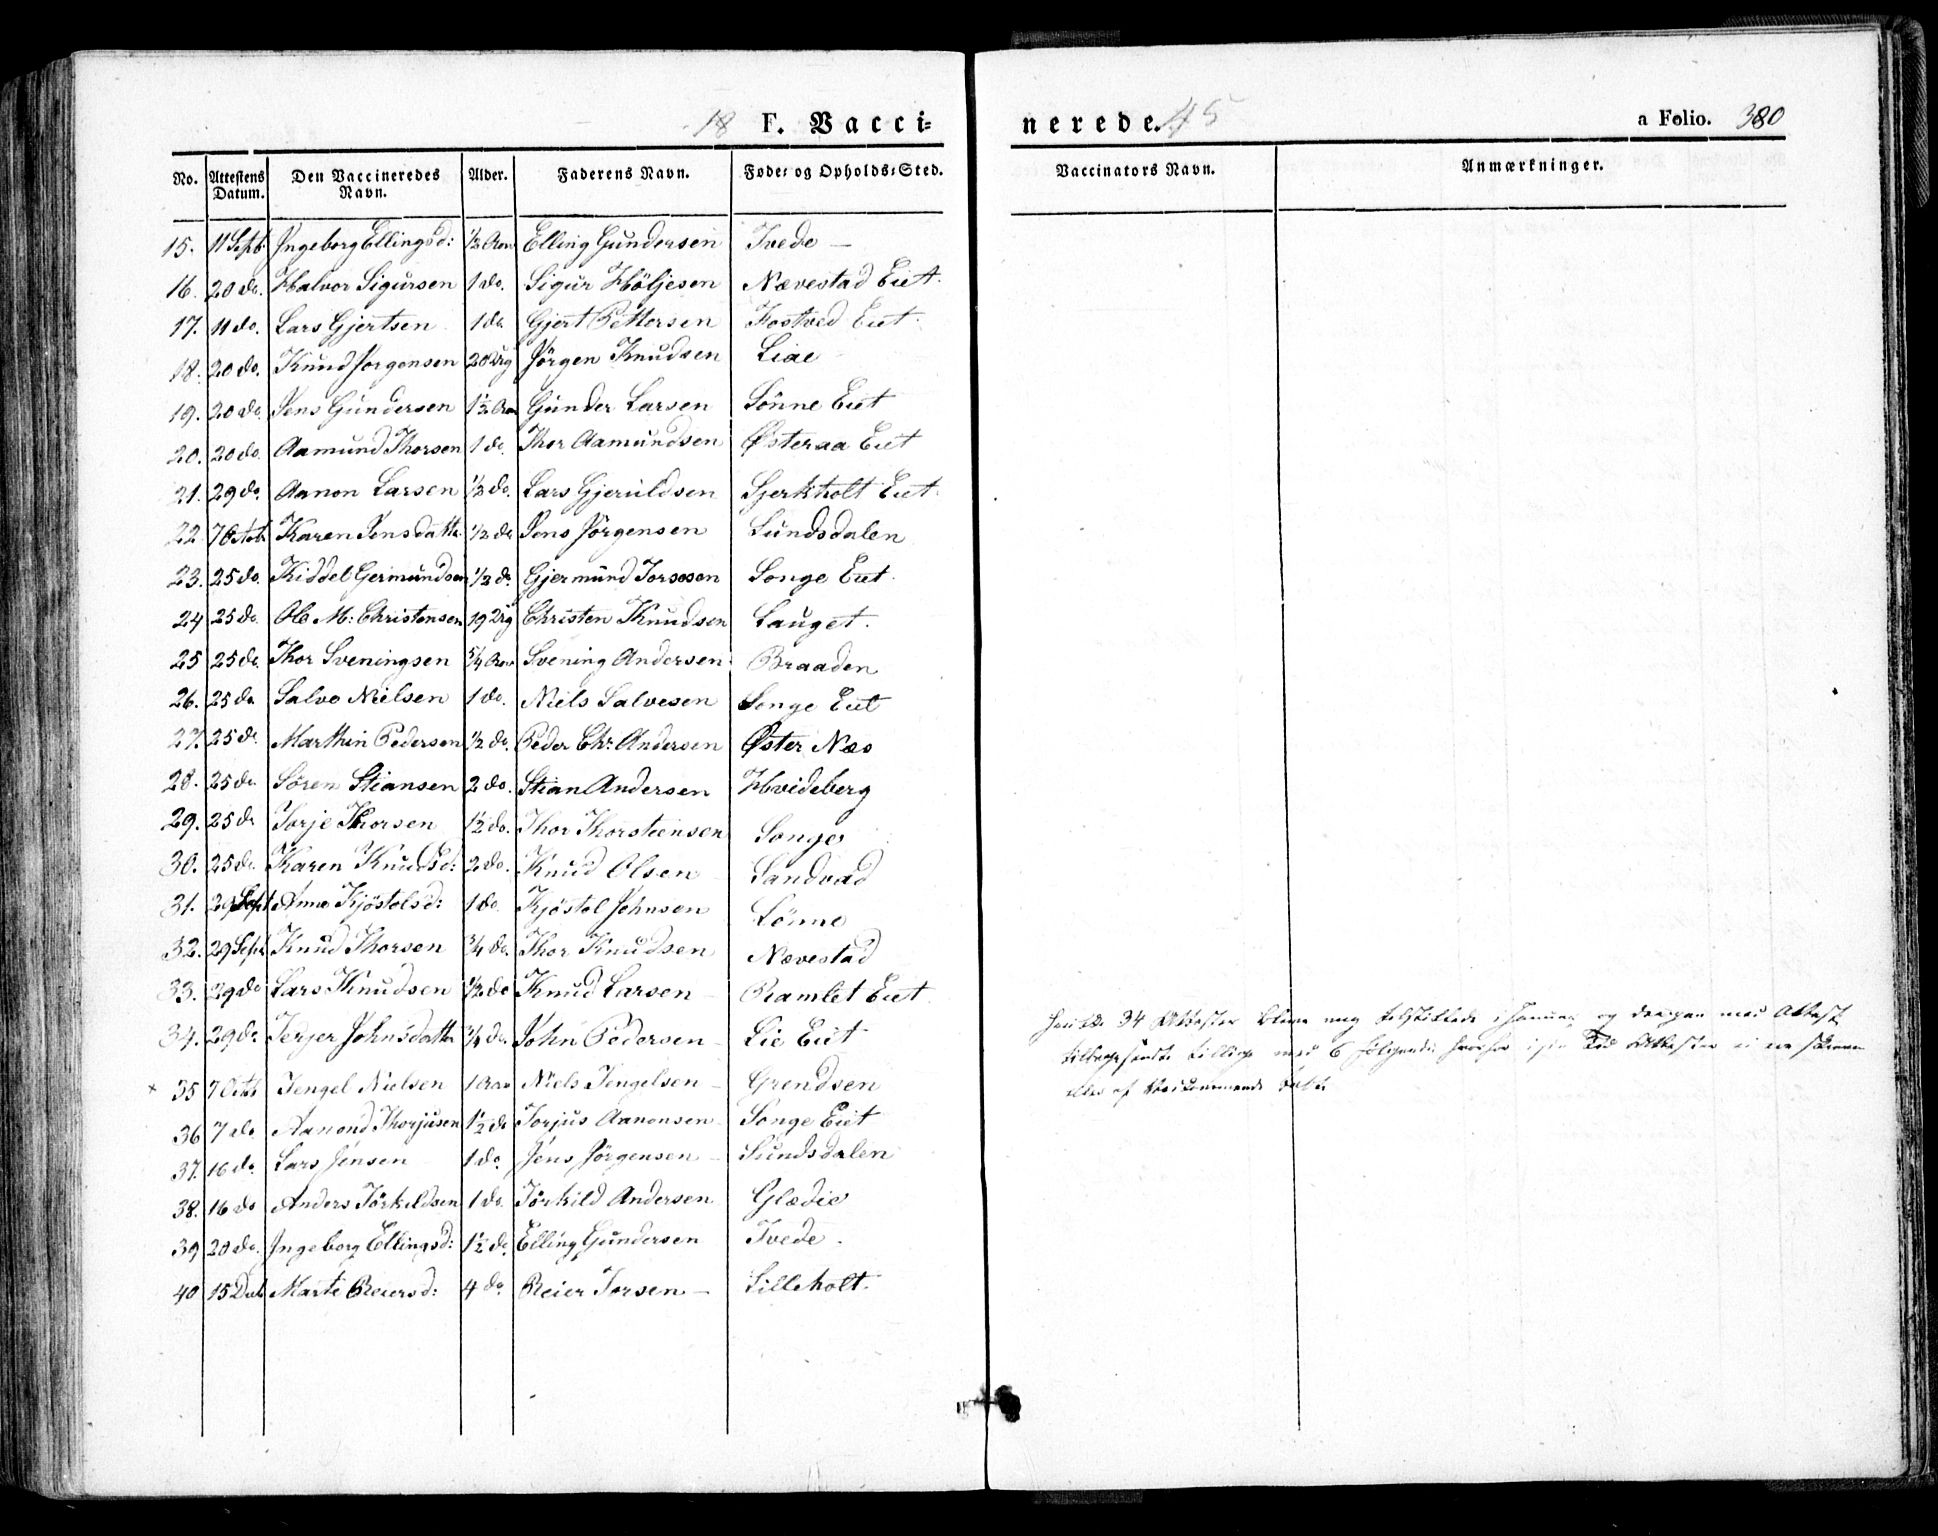 18 F. Vacci=
nerede. 45
a Folio. 380
No. Attestens Datum. Den Vaccineredes Navn. Alder. Faderens Navn. Føde= og Opholds=Sted. Vaccinators Navn. Anmærkninger.
15. 11 Sept Ingeborg Ellingsd: 1/2 Aar Elling Gundersen Tvede —
16. 20 do. Halvor Sigursen 1 do. Sigur Höljesen Nævestad Eiet.
17. 11 do. Lars Gjertsen 1 do Gjert Pettersen Fostved Eiet.
18. 20 do. Knud Jorgensen 20 Ug Jörgen Knudsen Liae
19. 20 do. Jens Gundersen 1 1/2 Aar Gunder Larsen Lönne Eiet
20. 20 do. Aamund Thorsen 1 do. Thor Aamundsen Østeraa Eiet
21. 29 do. Aanon Larsen 1/2 do. Lars Gjeruldsen Eiet.
22 7 Octob Karen Jensdatte 1/2 do Jens Jörgensen Lundsdalen
23. 25 do. Kiddel Germundsen 1/2 do. Gjermund Songe Eiet.
24 25 do. Ole M: Christensen 19 Ug Christen Knudsen Lauget.
25 25 do. Thor Sveningsen 5/4 Aar Svening Andersen Braaden
26. 25 do Salve Nielsen 1 do. Niels Salvesen Songe Eiet
27. 25 do Marthin Pedersen 1/2 do. Peder Chr: Andersen Øster Næs
28. 25 do. Sören Stiansen 2 do. Stian Andersen Hvideberg
29. 25 do Torje Thorsen 1 1/2 do. Thor Thorsteinsen Songe
30. 25 do. Karen Knudsd: 2 do. Knud Olsen Sandvad
31. 29 Sept Anne Kjöstolsd: 1 do. Kjöstol Johnsen Lönne
32. 29 Sept Knud Thorsen 3/4 do. Thor Knudsen Nævestad
33. 29 do Lars Knudsen 1/2 do Knud Larsen — Ramlet Eiet
34. 29 do Terjer Johnsdatter 3/4 do. John Pedersen — Lie Eiet
× 35 7 Octb Tengel Nielsen 1 Aar Niels Tengelsen — Grendsen
36 7 do Aanond Thorjusen 1 1/2 do Torjus Aanonsen Songe Eiet
37. 16 do. Lars Jensen 1 do. Jens Jörgensen — Lundsdalen
38. 16 do Anders Törkildsen 1 do. Törkild Andersen Glædie
39 20 do. Ingeborg Ellingsd: 1 1/2 do Elling Gundersen Tvede.
40 15 Marte Reiersd: 4 do Reier Torsen — Lilleholt.
34 Attester bleve mig tilstillede i Januar og med Attest
tillige med 6 følgende Attester ei
af Vedkommende